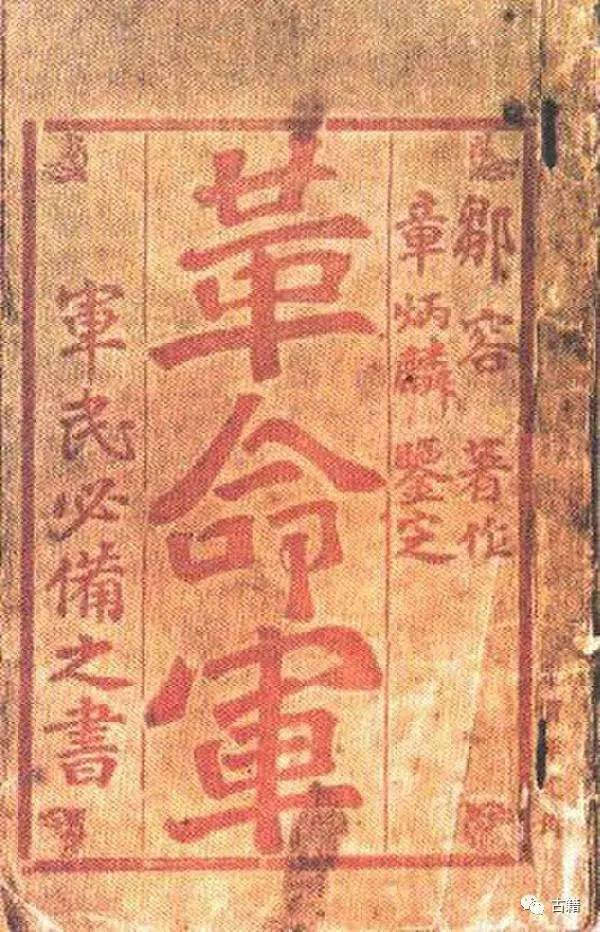 鄒容著作
章炳麟鑒定
革命軍
軍民必備之書
古籍